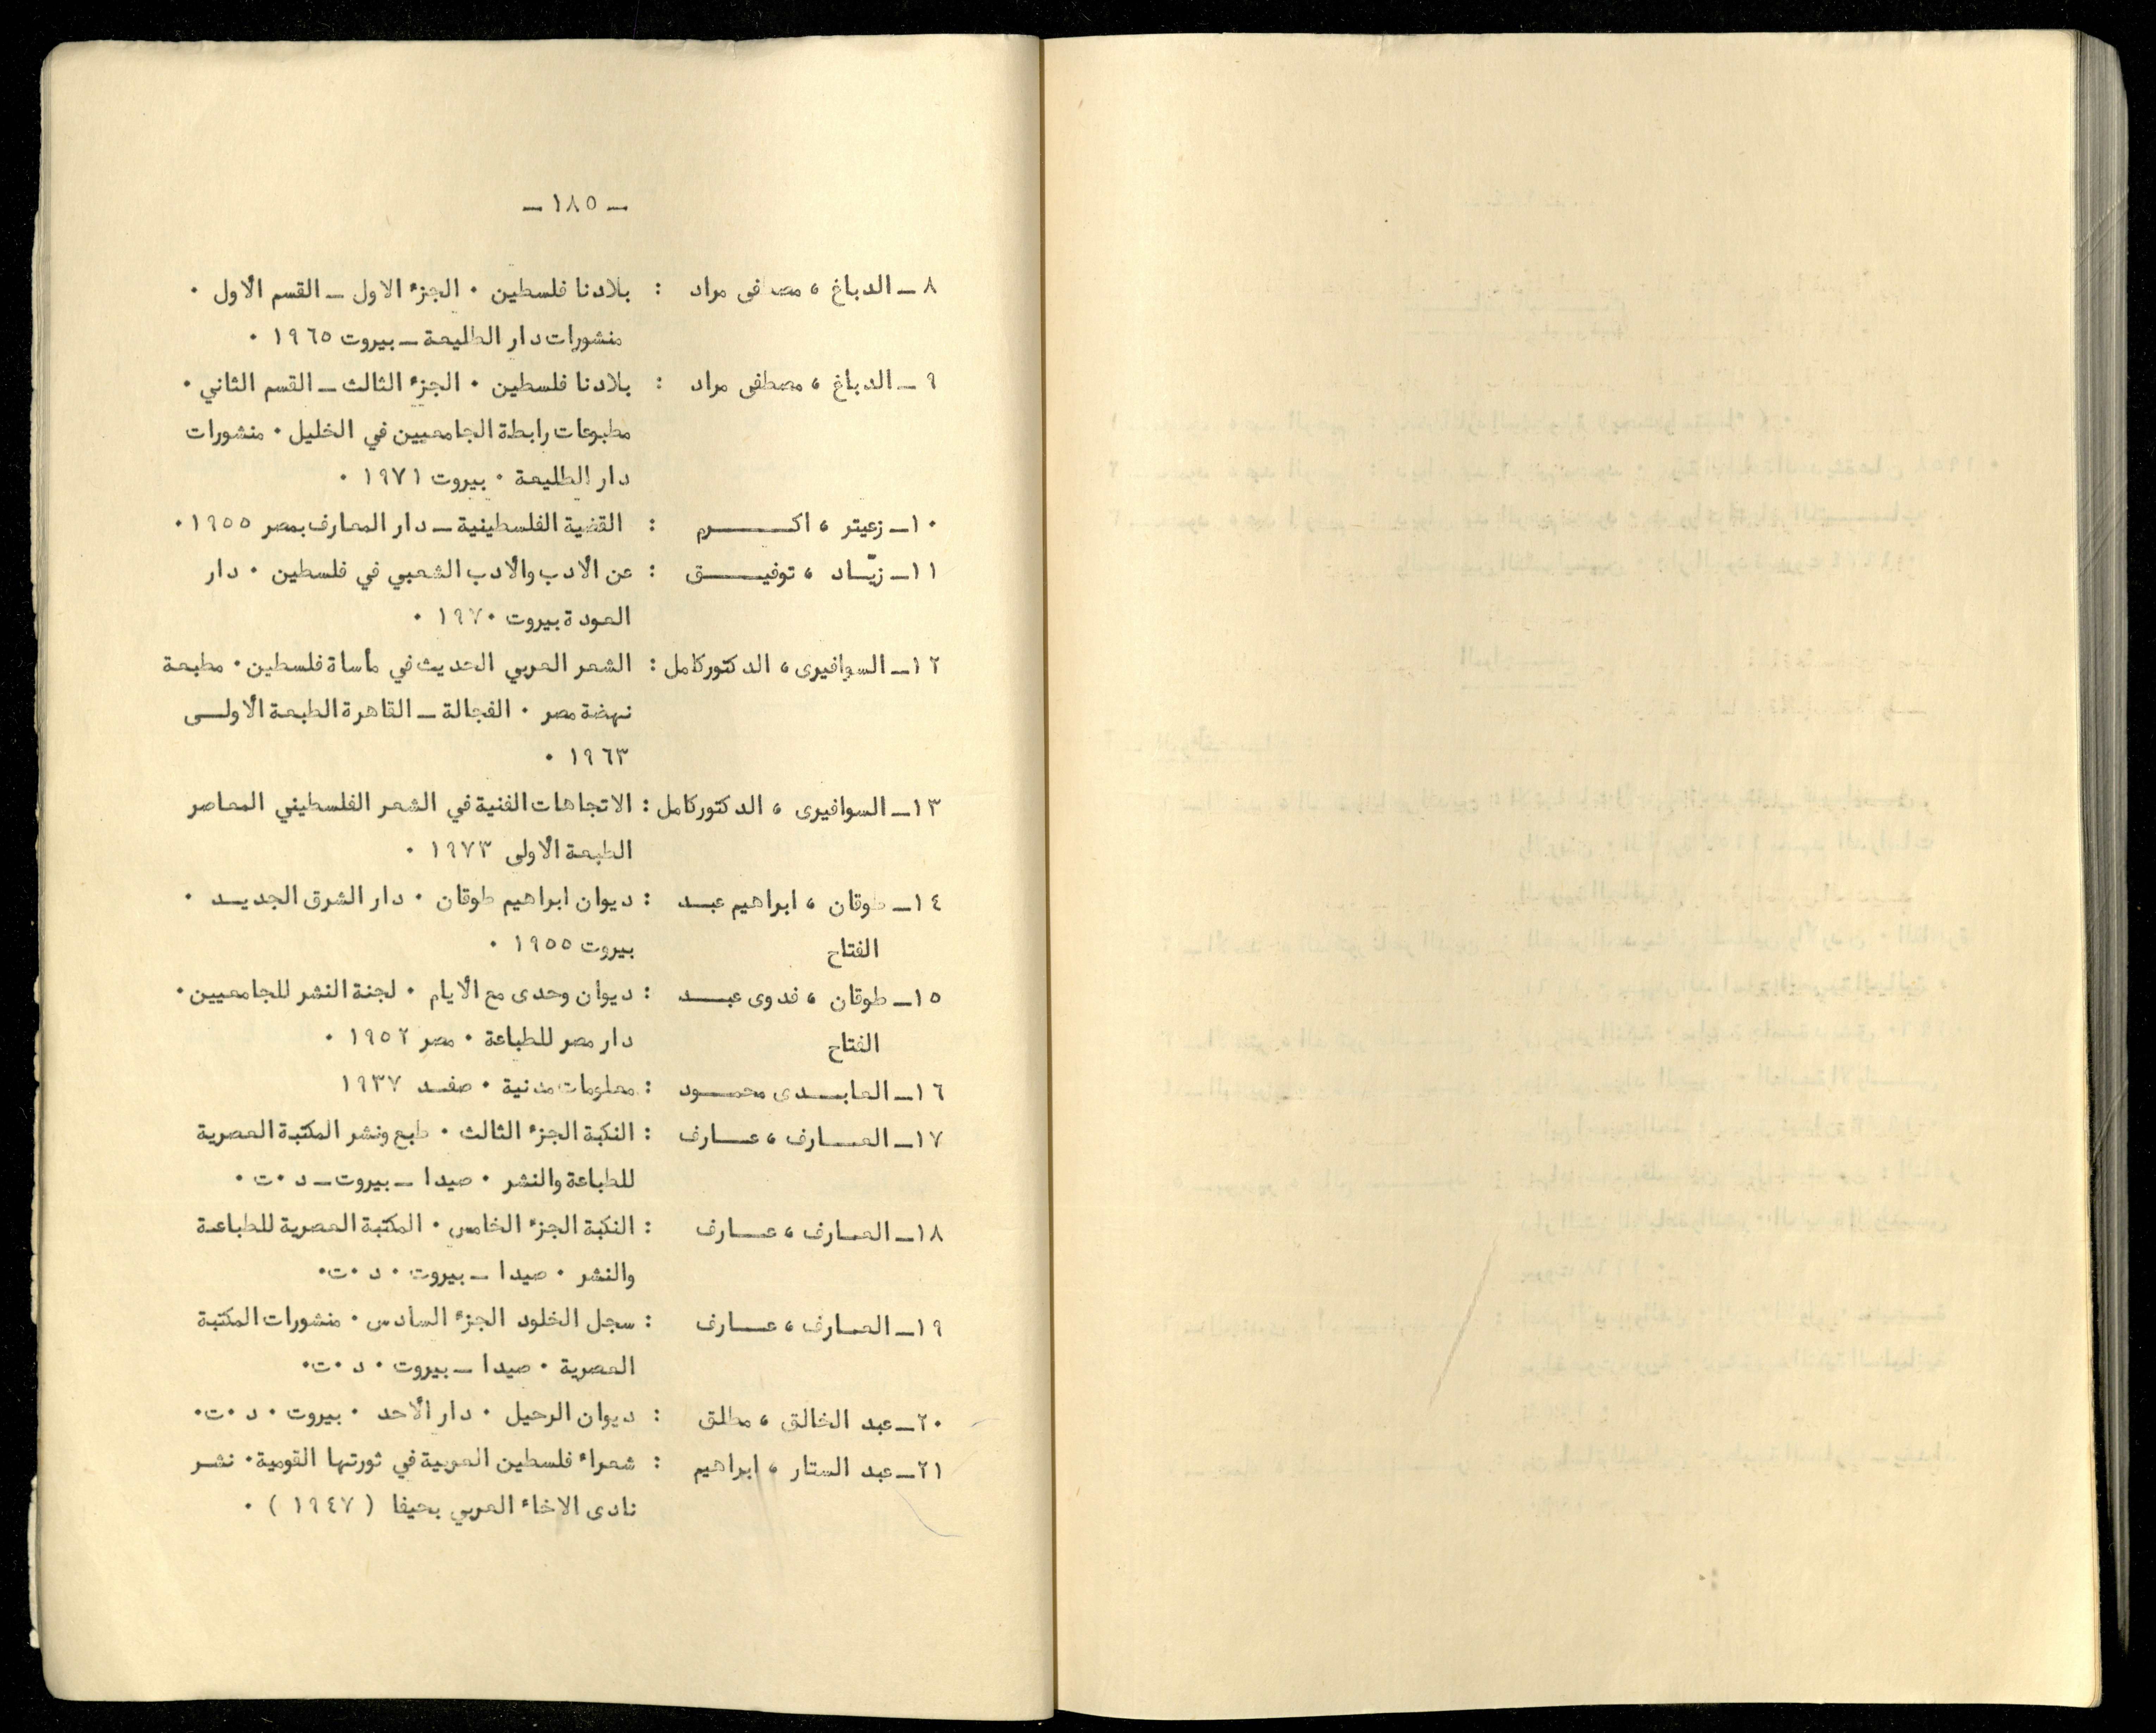 ـ ١٨٥ ـ
٨ ـ الدباغ ، مصطفى مراد : بلادنا فلسطين ٠ الجزء الاول ـ القسم الأول ٠
منشورات دار الطليعة ـ بيروت ١٩٦٥ ٠
٩ ـ الدباغ ، مصطفى مراد : بلادنا فلسطين ٠ الجزء الثالث ـ القسم الثاني ٠
مطبوعات رابطة الجامعيين في الخليل ٠ منشورات
دار الطليعة ٠ بيروت ١٩٧١ ٠
١٠ـ زعيتر ، اكــــــرم : القضية الفلسطينية ـ دار المعارف بمصر ١٩٥٥ ٠
١١ـ زيّـاد ، توفيـــــق : عن الأدب والأدب الشعبي في فلسطين ٠ دار
العودة بيروت ١٩٧٠ ٠
١٢ـ السوافيرى ، الدكتور كامل : الشعر العربي الحديث في مأساة فلسطين ٠ مطبعة
نهضة مصر ٠ الفجالة ـ القاهرة الطبعة الأولــى
١٩٦٣ ٠
١٣ـ السوافيرى ، الدكتور كامل : الاتجاهات الفنية في الشعر الفلسطيني المعاصر
الطبعة الأولى ١٩٧٣ ٠
١٤ـ طوقان ، ابراهيم عبــد : ديوان ابراهيم طوقان ٠ دار الشرق الجديــد ٠
الفتاح بيروت ١٩٥٥ ٠
١٥ـ طوقان ، فدوى عبــــد : ديوان وحدى مع الأيام ٠ لجنة النشر للجامعيين ٠
الفتاح دار مصر للطباعة ٠ مصر ١٩٥٢ ٠
١٦ـ العابـــدى محمــــود : معلومات مدنية ٠ صفــد ١٩٣٧
١٧ـ العــــارف ، عــــارف : النكبة الجزء الثالث ٠ طبع ونشر المكتبة العصرية
للطباعة والنشر ٠ صيدا ـ بيروت ـ د ٠ ت ٠
١٨ـ العــارف ، عــارف : النكبة الجزء الخامس ٠ المكتبة العصرية للطباعــة
والنشر ٠ صيدا ـ بيروت ٠ د ٠ ت٠
١٩ـ العــارف ، عــارف : سجل الخلود الجزء السادس ٠ منشورات المكتبة
العصرية ٠ صيدا ـ بيروت ٠ د ٠ ت٠
٢٠ـ عبد الخالق ، مطلق : ديوان الرحيل ٠ دار الأحد ٠ بيروت ٠ د ٠ ت٠
٢١ـ عبد الستار ، ابراهيم : شعراء فلسطين العربية في ثورتها القومية ٠ نشــر
نادى الاخاء العربي بحيفا ( ١٩٤٧ ) ٠